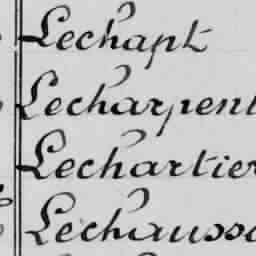 Lechapt
Lecharpent
Lechartier
Lechausso